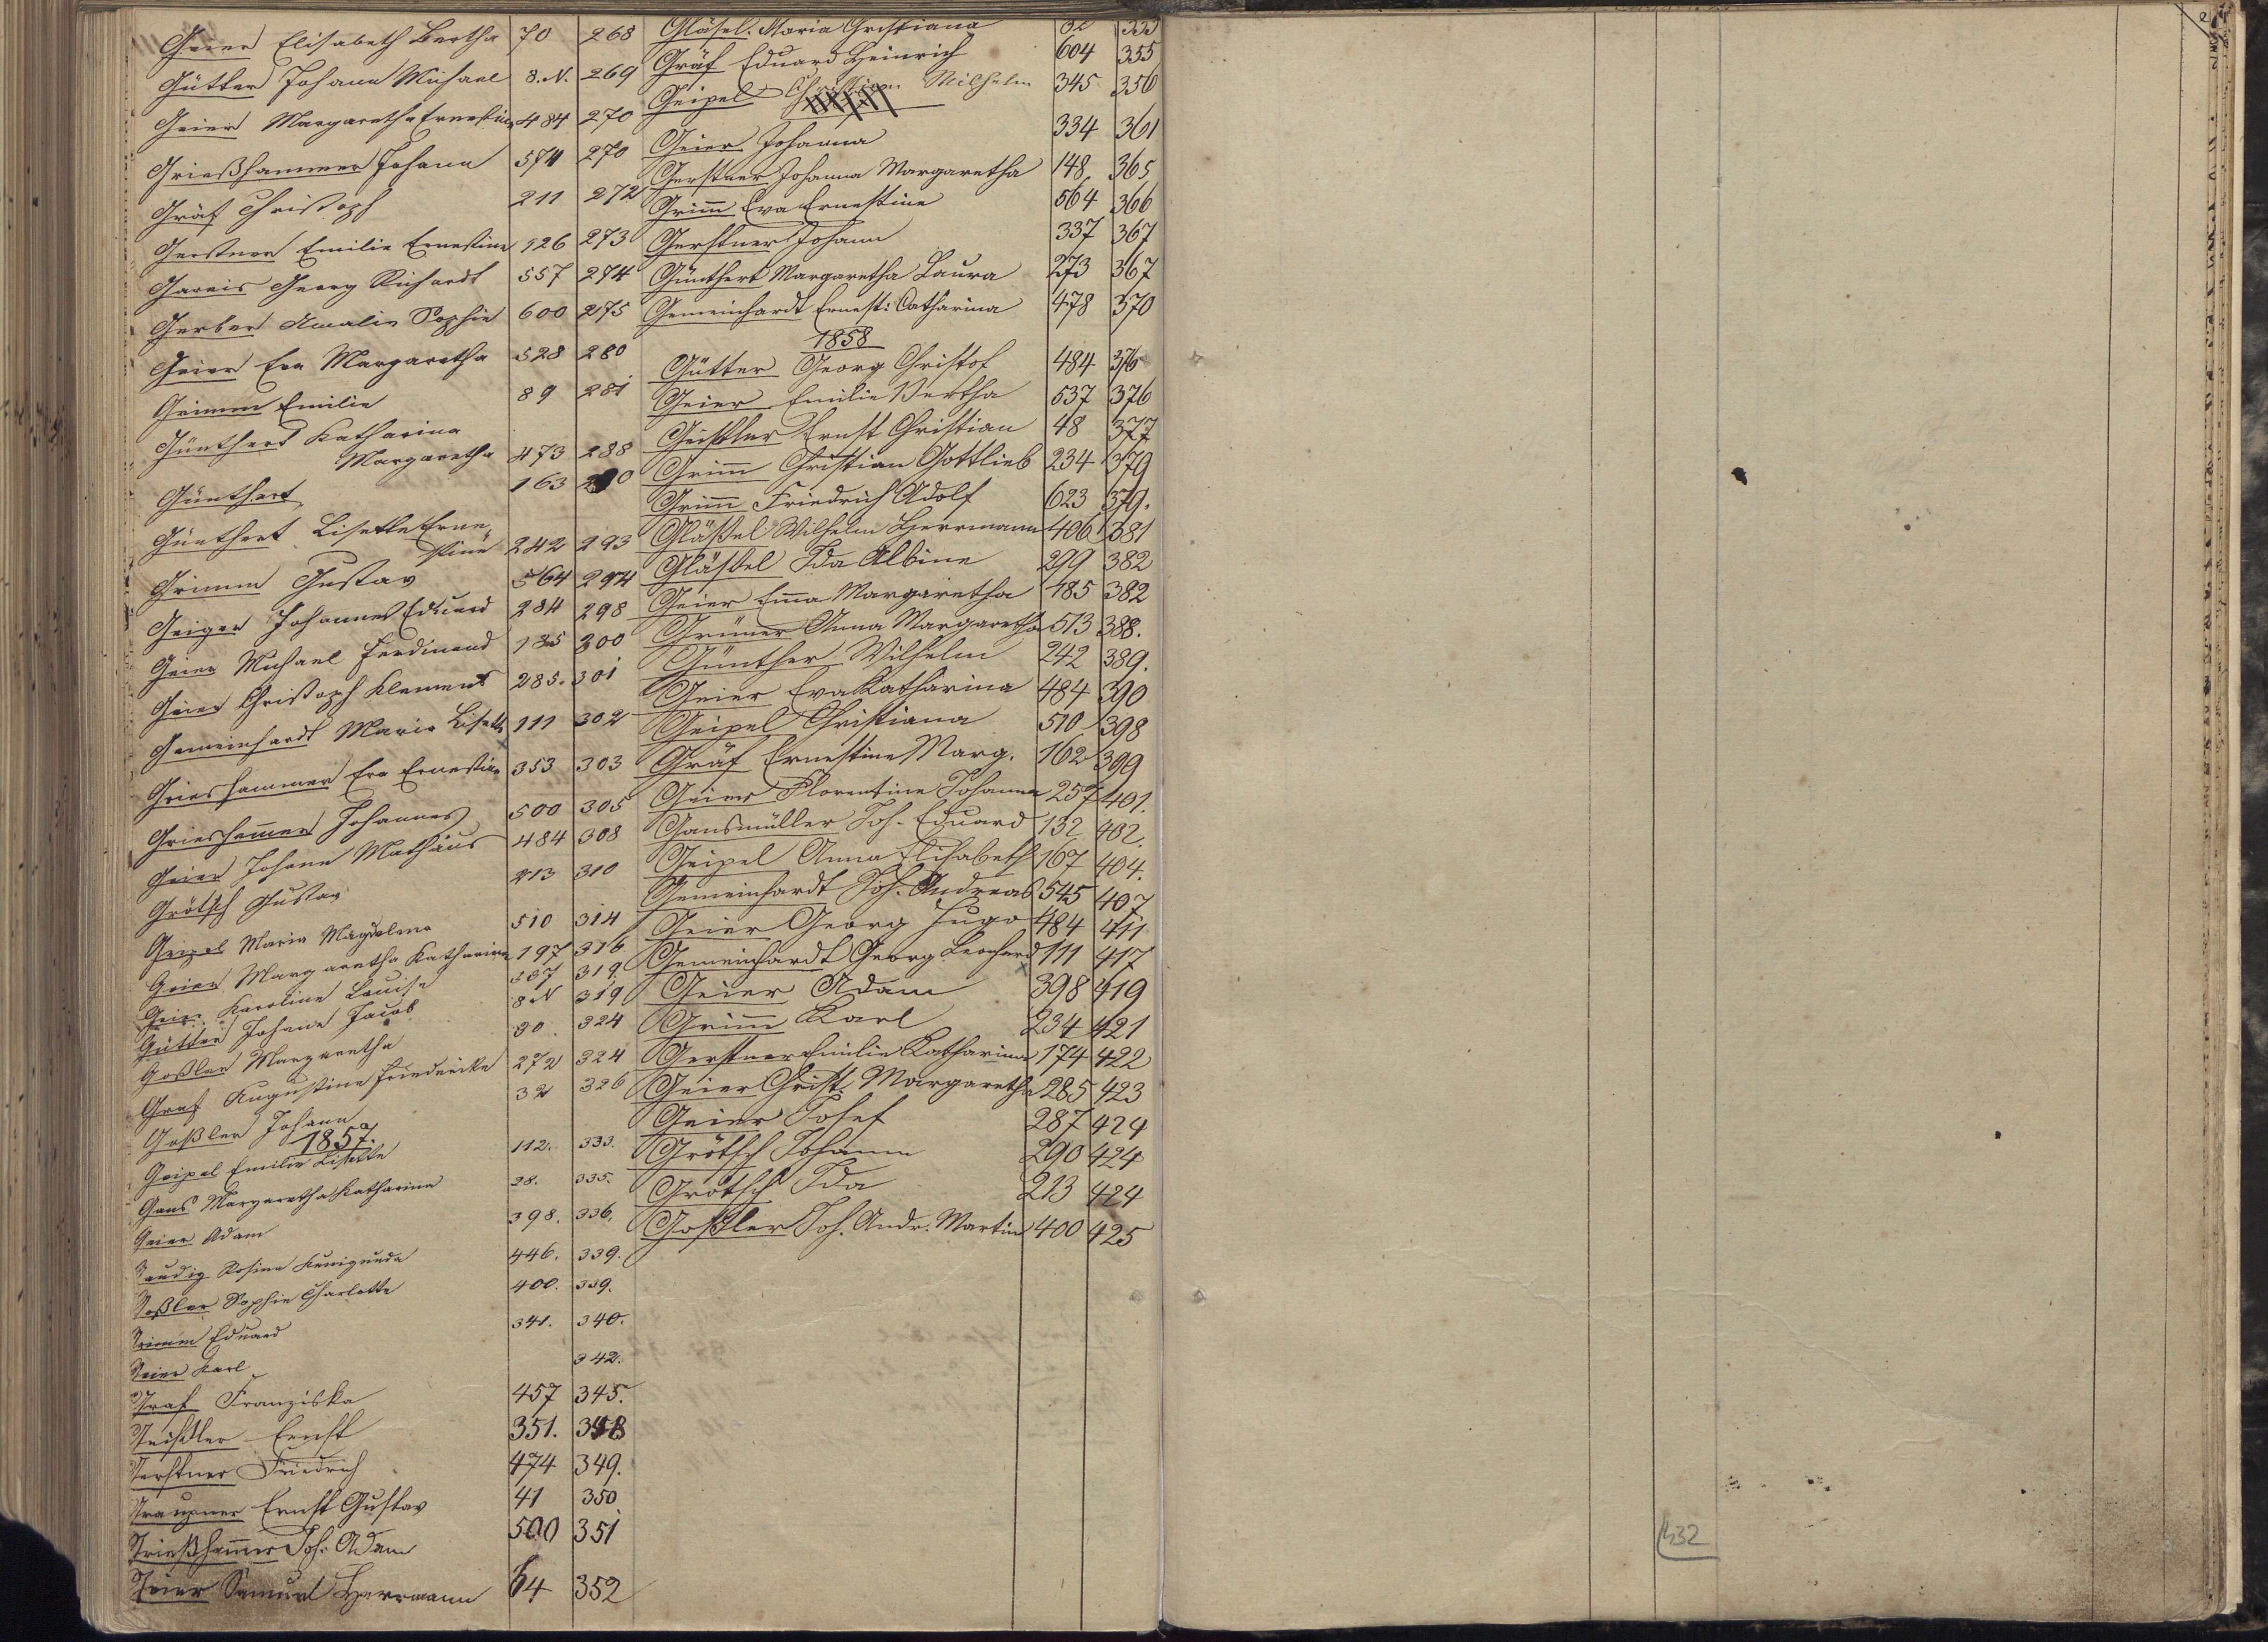 Geier Elisabeth Bertha 70 268
Gütter Johann Michael 8.N. 269
Geier Margaretha Ernestine 484 270
Grießhammer Johann 574 270
Gräf Christoph 211 272
Gerstner Emilie Ernestine 126 273
Gareis Georg Richardt 557 274
Gerber Amalie Sophie 600 275
Geier Eva Margaretha 528 280
Grimm Emilie 89 281
Günthert Katharina
Margaretha 473 288
Günthert 163
Günthert Lisette Erne
stine 242 293
Grimm Gustav 564 294
Geiger Johannes Eduard 284 298
Geier Michael Ferdinand 185 300
Geier Christoph Klement 285. 301
Gemeinhardt Maria Lisette 111 302
Grieshammer Eva Ernestine 353 303
Griesham̅er Johannes 500 305
Geier Johann Mathäus 484 308
Grötsch Gustav 213 310
Geipel Maria Magdalena 510 314
Geier Margaretha Katharina 197 316
Geier Karoline Louise 319
Gütter Johann Jacob 8.N 319
Goßler Margaretha 30. 324
Graf Augustine Friedericke 272 324
Goßler Johann 32 326
1857.
Geipel Emilie Lisette 112. 333.
Gans Margaretha Katharina 28. 335.
Geier Adam 398. 336.
Gaudig Rosine Kunigunda 446. 339.
Goßler Sophie Charlotte 400. 339.
Grimm Eduard 341. 340.
Geier Karl 342.
Graf Franziska 457 345.
Geißler Ernst 351. 348
Gerstner Friedrich 474 349.
Graupner Ernst Gustav 41 350
Grießham̅er Joh. Adam 500 351
Geier Samuel Herrmann 64 352
Gläsel Maria Christiana 32 353
Gräf Eduard Heinrich 604 355
Geipel Christian Wilhelm 345 356
Geier Johanna 334 361
Gerstner Johanna Margaretha 148 365
Grim̅ Eva Ernestine 564 366
Gerstner Johann 337 367
Günthert Margaretha Laura 273 367
Gemeinhardt Ernest: Catharina 478 370
1858
Gütter Georg Christof 484 376
Geier Emilie Bertha 537 376
Geißler Ernst Christian 48 377
Grim̅ Christian Gottlieb 234 379
Grim̅ Friedrich Adolf 623 379.
Gläßel Wilhelm Herrmann 406 381
Gläßel Ida Albine 299 382
Geier Em̅a Margaretha 185 382
Grüner Anna Margaretha 513 388.
Günther Wilhelm 242 389.
Geier Eva Katharina 484 390
Geipel Christiana 510 398
Gräf Ernestine Marg. 162 399
Geier Florentine Johanna 257 401.
Gansmüller Joh. Eduard 132 402.
Geipel Anna Elisabeth 167 404.
Gemeinhardt Joh. Andreas 545 407
Geier Georg Hugo 484 411
Gemeinhardt Georg Leonhard 111 417
Geier Adam 398 419
Grim̅ Karl 234 421
Gerstner Emilie Katharina 174 422
Geier Christ. Margaretha 285 423
Geier Josef 287 424
Grötsch Johann 290 424
Grötsch Ida 213 424
Goßler Joh. Andr. Martin 400 425
432